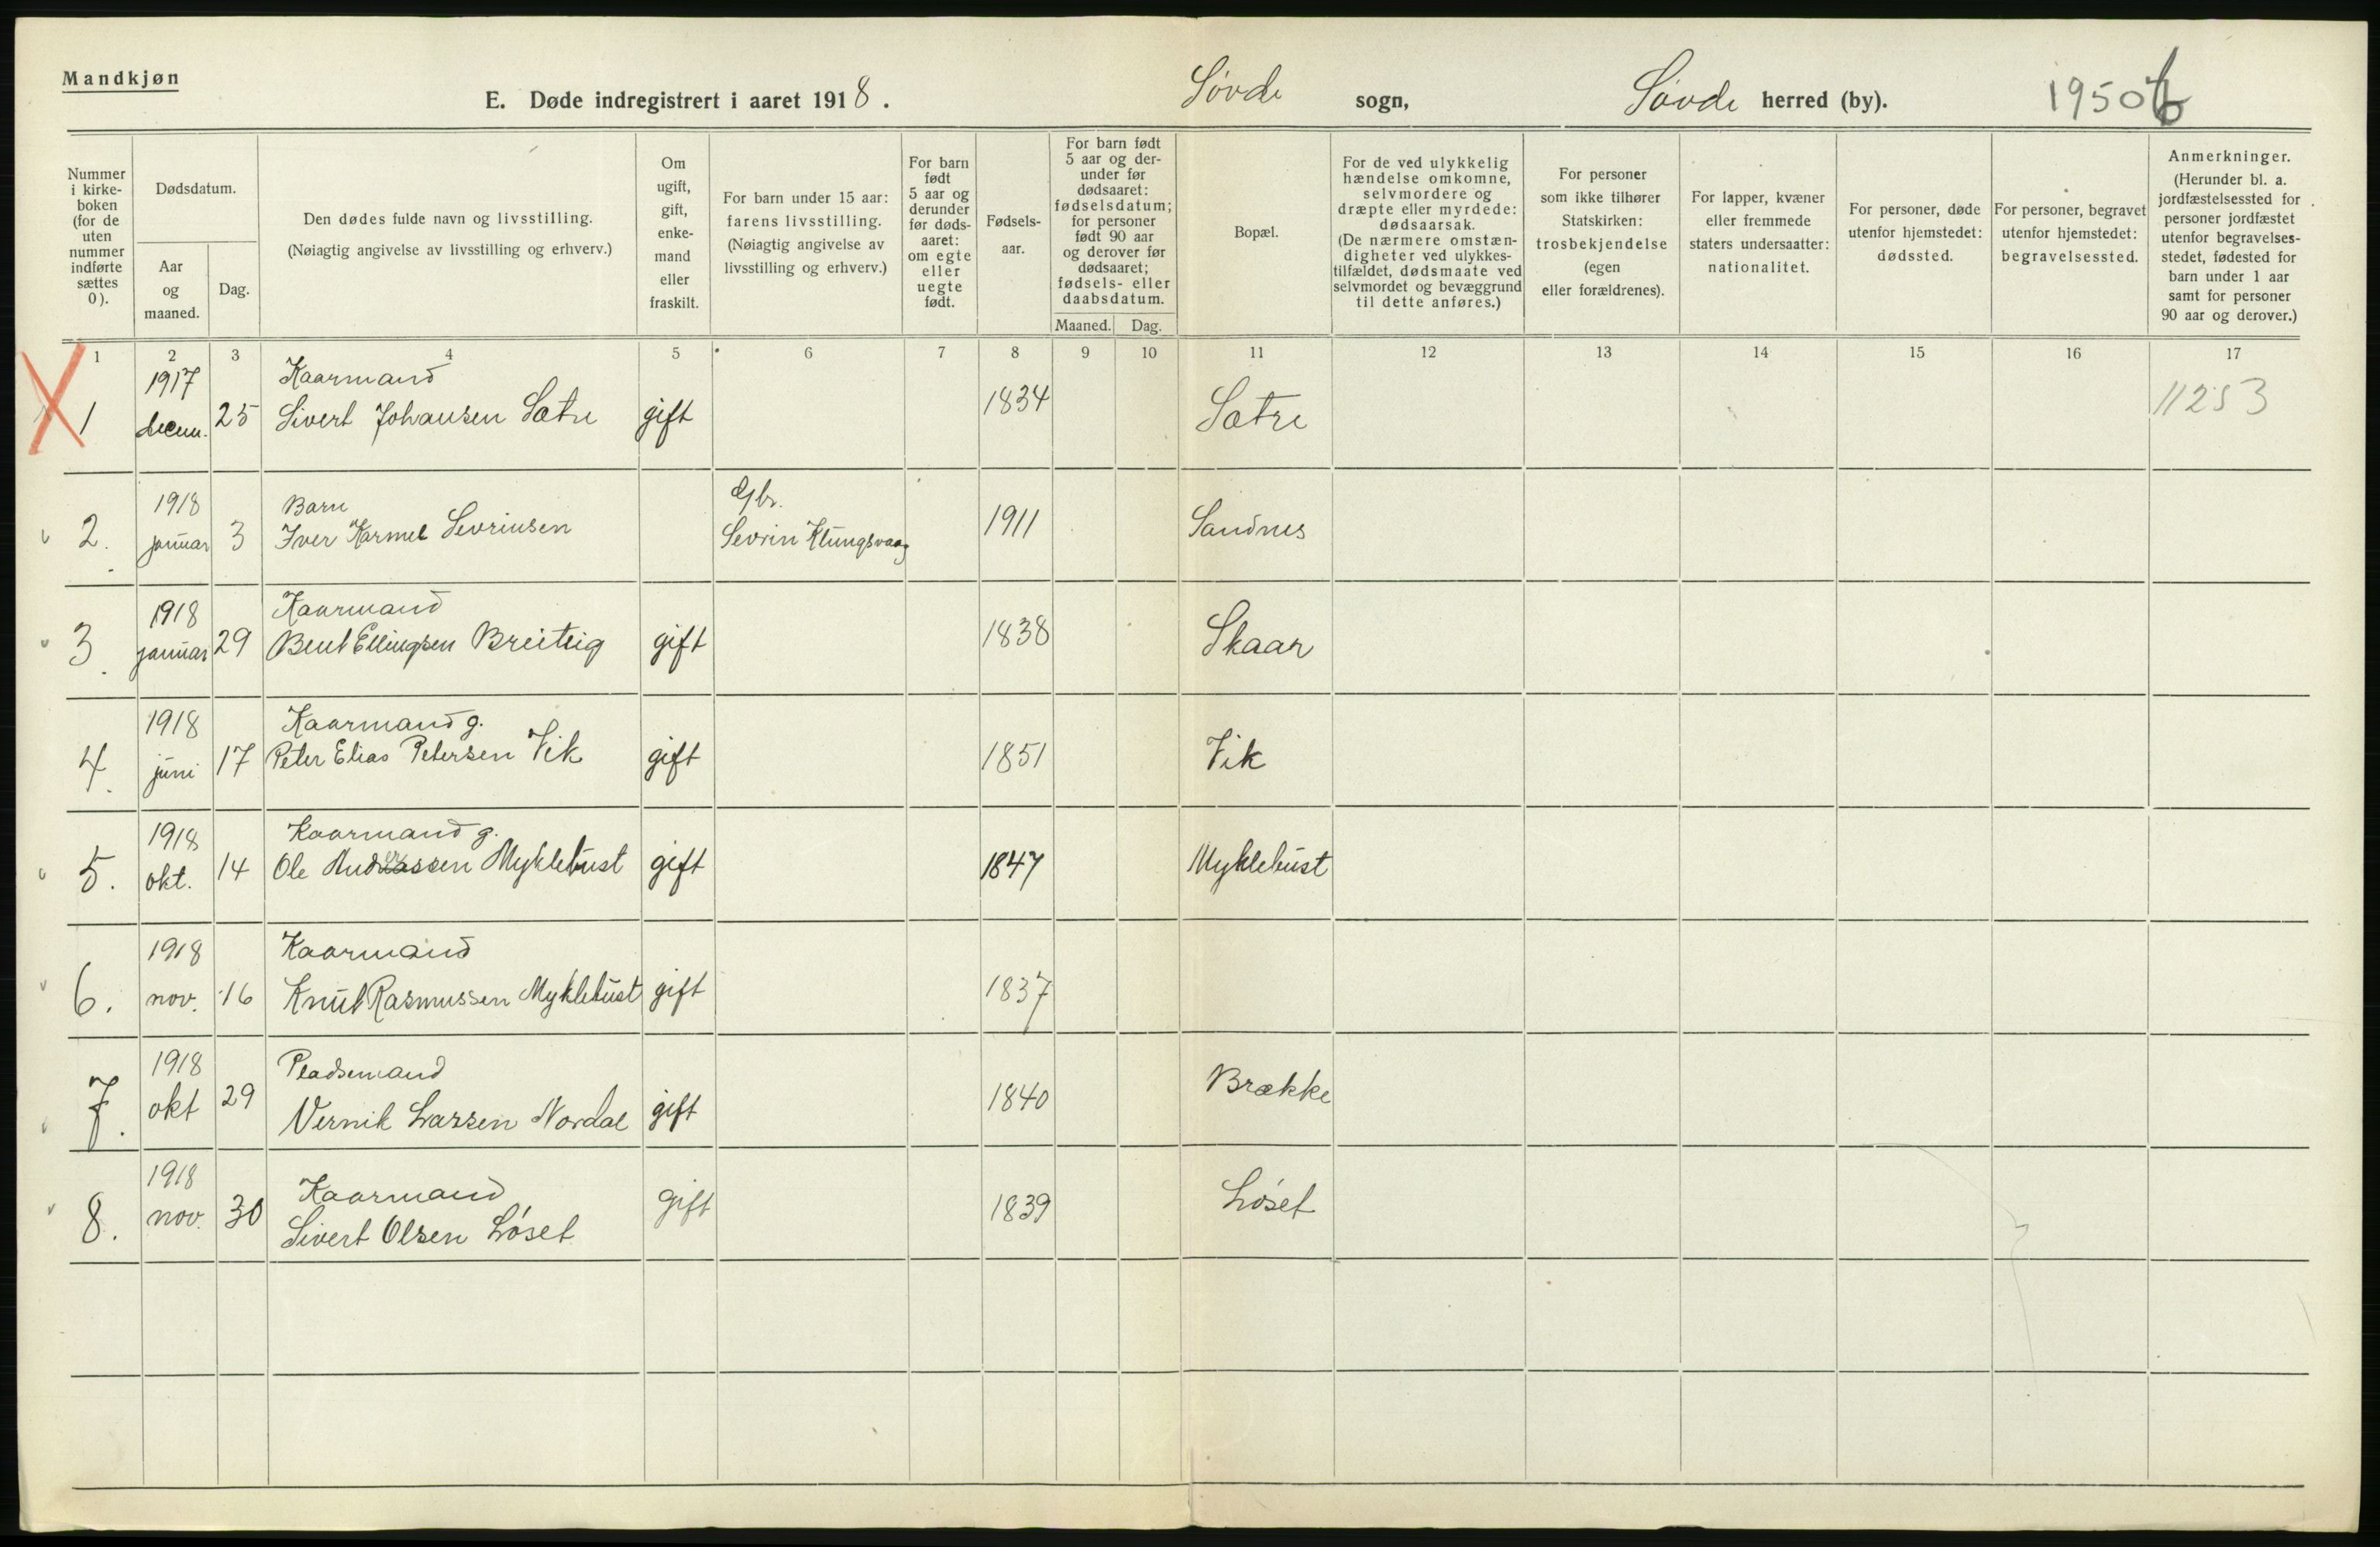 Mandkjøn
E. Døde indregistrert i aaret 1918. Søvde sogn, Søvde herred (by). 1950
Nummer i kirke-boken (for de uten nummer indførte sættes 0).
Dødsdatum.
Aar og maaned.
Dag.
Den dødes fulde navn og livsstilling.
(Nøiagtig angivelse av livsstilling og erhverv.)
Om ugift, gift, enke-mand eller fraskilt.
For barn under 15 aar: farens livsstilling.
(Nøiagtig angivelse av livsstilling og erhverv.)
For barn født 5 aar og derunder før døds-aaret: om egte eller uegte født.
Fødsels-aar.
For barn født 5 aar og der-under før dødsaaret: fødselsdatum; for personer født 90 aar og derover før dødsaaret; fødsels- eller daabsdatum.
Maaned. Dag.
Bopæl.
For de ved ulykkelig hændelse omkomne, selvmordere og dræpte eller myrdede: dødsaarsak.
(De nærmere omstæn-digheter ved ulykkes-tilfældet, dødsmaate ved selvmordet og bevæggrund til dette anføres.)
For personer som ikke tilhører Statskirken: trosbekjendelse (egen eller forældrenes).
For lapper, kvæner eller fremmede staters undersaatter: nationalitet.
For personer, døde utenfor hjemstedet: dødssted.
For personer, begravet utenfor hjemstedet: begravelsessted.
Anmerkninger.
(Herunder bl. a. jordfæstelsessted for personer jordfæstet utenfor begravelses-stedet, fødested for barn under 1 aar samt for personer 90 aar og derover.)
1 2 3 4 5 6 7 8 9 10 11 12 13 14 15 16 17
1917 Kaarmand
1 decem. 25 Sivert Johansen Sætre gift 1834 Sætre 11253
1918 Barn Gbr.
2. januar 3 Iver Karmel Sevrinsen Sevrin Klungsvaag 1911 Sandnes
1918 Kaarmand
3. januar 29 Bent Ellingsen Breiteig gift 1838 Skaar
1918 Kaarmand g.
4. juni 17 Peter Elias Petersen Vik gift 1851 Vik
1918 Kaarmand g.
5. okt. 14 Ole Myklebust gift 1847 Myklebust
1918 Kaarmand
6. nov. 16 Knut Rasmussen Myklebust gift 1837
1918 Pladsemand
7. okt 29 Vernik Larsen Nordal gift 1840 Brække
1918 Kaarmand
8. nov. 30 Sivert Olsen Løset gift 1839 Løset